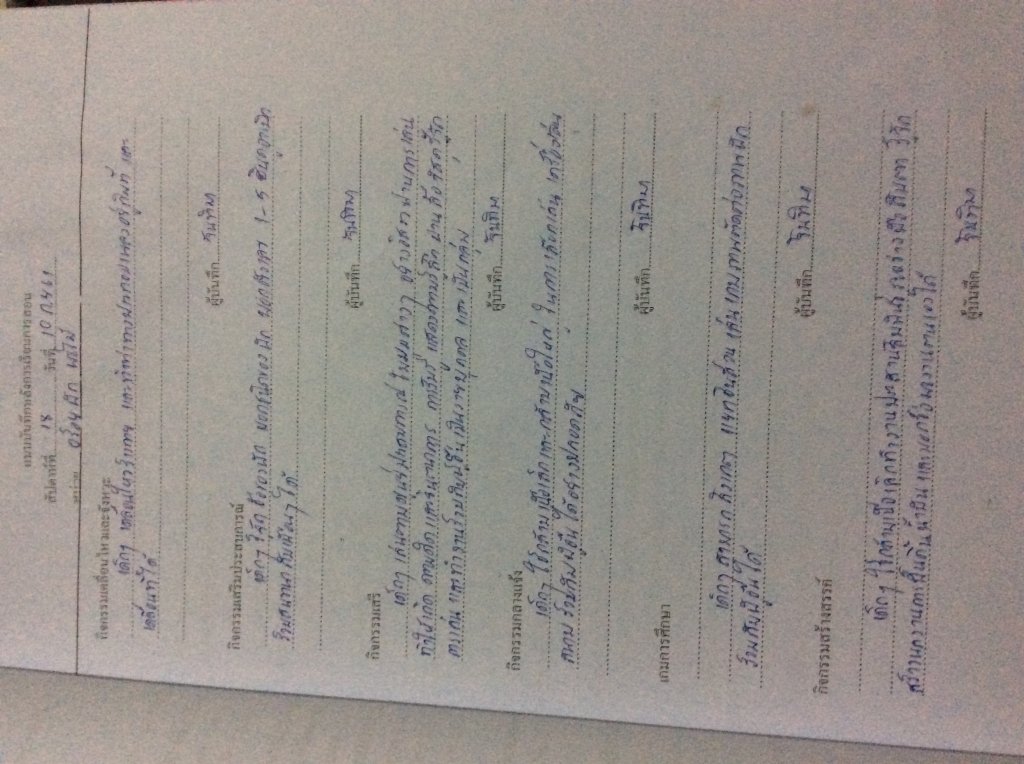 แบบบันทึกหลังการเรียนการสอน
สัปดาห์ที่ 18 วันที่ 10 ก.ย 61
หน่วย อร่อยผัก ผลไม้
กิจกรรมเคลื่อนไหวและจังหวะ
เด็กๆ เคลื่อนไหวร่างกาย และทำท่าทางประกอบเพลงอยู่กับที่ และ
เคลื่อนที่ได้
ผู้บันทึก วันทิพา
กิจกรรมเสริมประสบการณ์
เด็กๆ รู้จัก ชื่อของผัก บอกชนิดของ ผัก บอกสีของ 1-5 ชื่นดูจาก
ร่วมสนทนากับเพื่อนๆ ได้
ผู้บันทึก วันทิพา
กิจกรรมเสรี
เด็กๆ เล่นตามมุมประสบการณ์ สร้างอิสระ ผ่านการเล่น
ทำให้เกิด ความคิด และจินตนาการ การเรียนรู้ แสดงความรู้สึก
การเล่น และทำงานร่วมกับผู้อื่น เป็นรายบุคคล และ เป็นกลุ่ม
ผู้บันทึก วันทิพา
กิจกรรมกลางแจ้ง
เด็กๆ ใช้กล้ามเนื้อเล็กและกล้ามเนื้อใหญ่ ในการเล่นเครื่องเล่น
สนาม ร่วมกับผู้อื่น ได้อย่างปลอดภัย
ผู้บันทึก วันทิพา
เกมการศึกษา
เด็กๆ สามารถ สังเกต แยกชิ้นส่วน เล่นเกมภาพตัดต่อภาพผัก
ร่วมกับผู้อื่นได้
ผู้บันทึก วันทิพา
กิจกรรมสร้างสรรค์
เด็กๆ ใช้กล้ามเนื้อเล็กทำงานประสานสัมพันธ์ระหว่างมือกับตา รู้จัก
สร้างผลงานการปั้นดินน้ำมัน และบอกชื่อผลงานตนเองได้
ผู้บันทึก วันทิพา